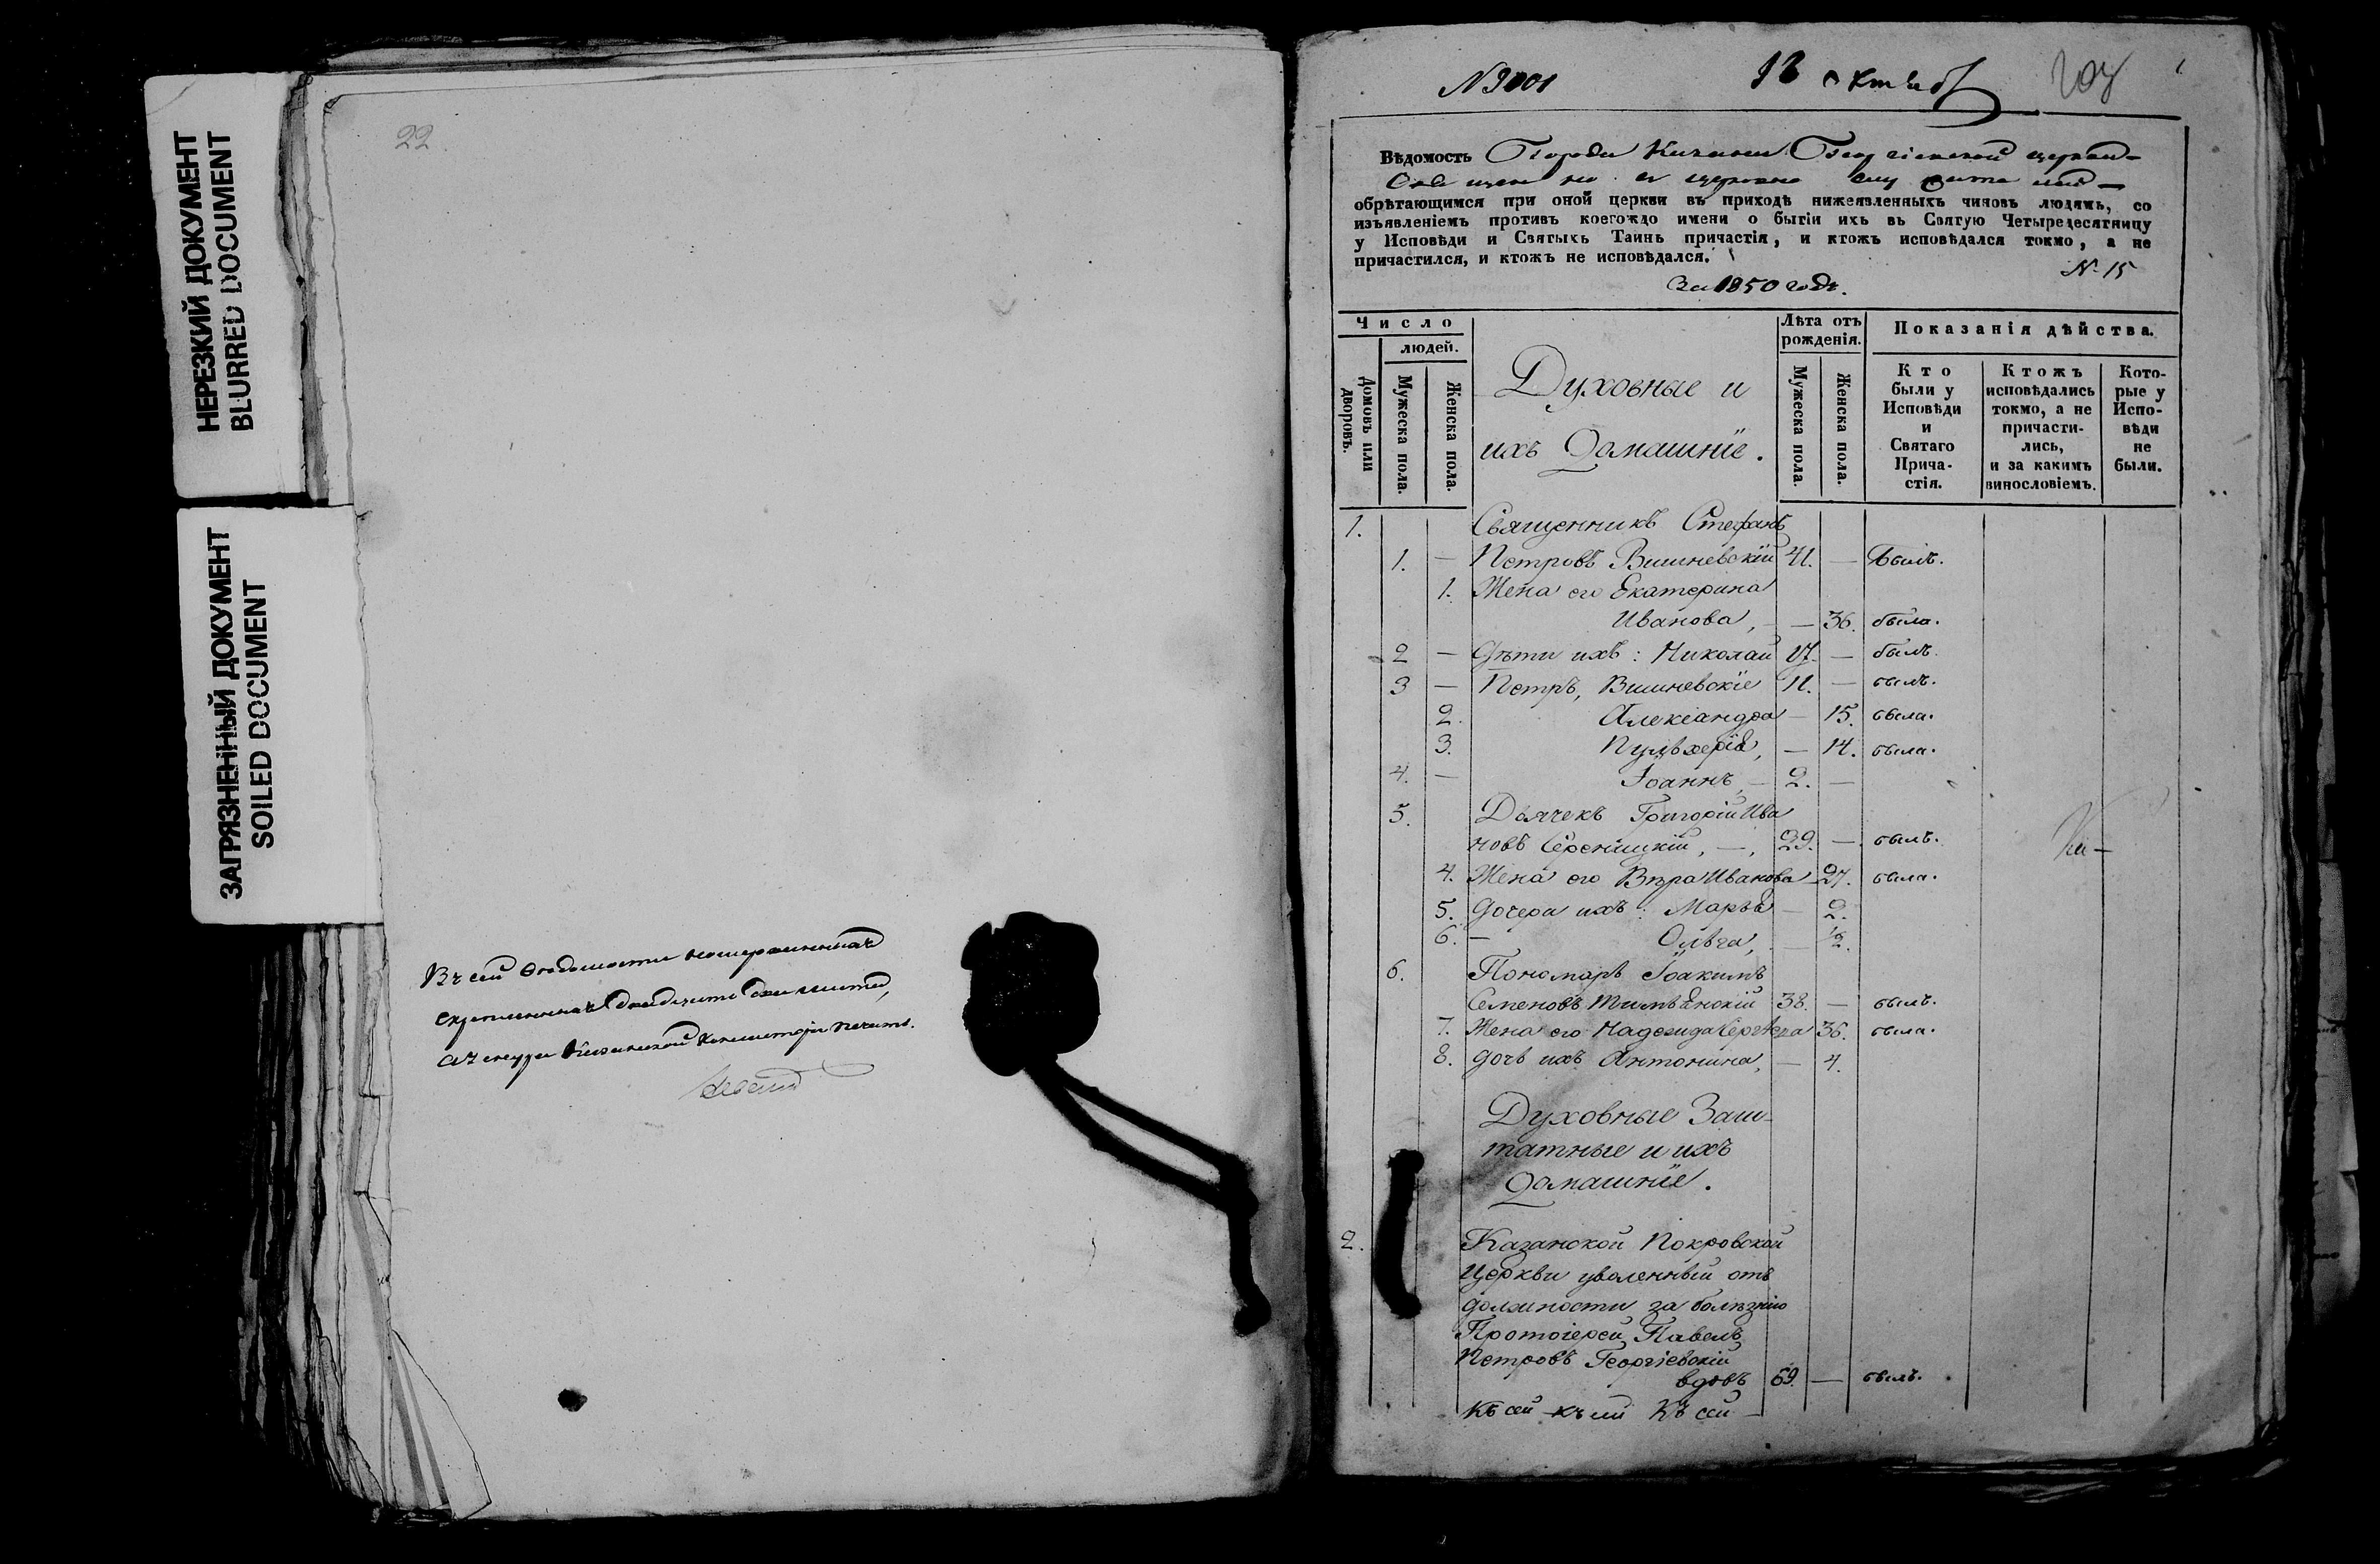 НЕРЕЗКИЙ ДОКУМЕНТ
BLURRED DOCUMENT
ЗАГРЯЗНЕННЫЙ ДОКУМЕНТ
SOILED DOCUMENT
22
Въ сей
скрепленныхъ двадцать два листа,
печать.
N 3001
октяб
Вѣдомость Города Георгіевской церкви
обрѣтающимся при оной церкви въ приходѣ нижеявленныхъ чиновъ людямъ, со
изъявленіемъ противъ коегождо имени о бытіи ихъ въ Святую Четыредесятницу
у Исповѣди и Святыхъ Таинъ причастія, и ктожъ исповѣдался токмо, а не
причастился, и ктожъ не исповѣдался.
N. 15
За 1850 годъ.
Число
людей.
Домовъ или дворовъ.
Мужеска пола.
Женска пола.
Духовные и
ихъ Домашніе.
Лѣта отъ рожденія.
Мужеска пола.
Женска пола.
Показанія дѣйства.
Кто были у Исповѣди и Святаго Прича- стія.
Ктожъ исповѣдались токмо, а не причасти- лись, и за какимъ винословіемъ.
Кото- рые у Испо- вѣди не были.
1. Священникъ Стефанъ
1. — Петровъ Вишневскій 41. — былъ.
1. Жена его Екатерина
Иванова, — 36. была.
2 — Дѣти ихъ: Николай 17. — былъ.
3 — Петръ, Вишневскіе 11. — былъ.
2. Александра — 15. была.
3. Пульхерія, — 14. была.
4. — Іоаннъ, — 2. —
5. Дьячекъ Григорій Ива
новъ 29. — былъ.
4. Жена его Вѣра Иванова 27. была.
5. Дочери ихъ: Марья — 2.
6. — Ольга, — ½.
6. Пономарь Іоакимъ
Семеновъ 38. — былъ.
7. Жена его Надежда Сергѣева 36. была.
8. дочь ихъ Антонина, — 4.
Духовные Заш-
татные и ихъ
Домашніе.
2. Казанской Покровской
Церкви уволенный отъ
должности за болѣзнію
Протоіерей Павелъ
Петровъ Георгіевскій
вдовъ 69. — былъ.
Къ сей къ сей Къ сей